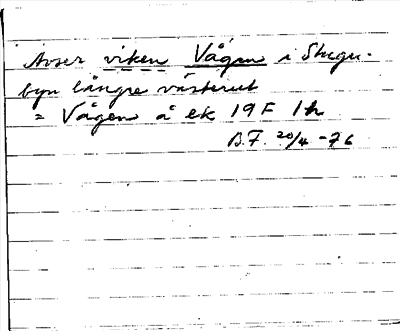 Avser viken Vågen i Stugu-
byn längre västerut
= Vågen å ek 19F 1h
B.F. 20/4 -76